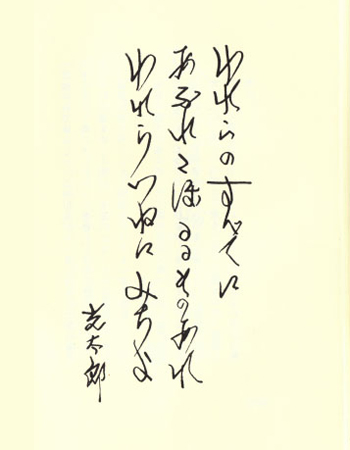 われらのすべてに
あふれこほるるものあれ
われらつねにみちよ
光太郎